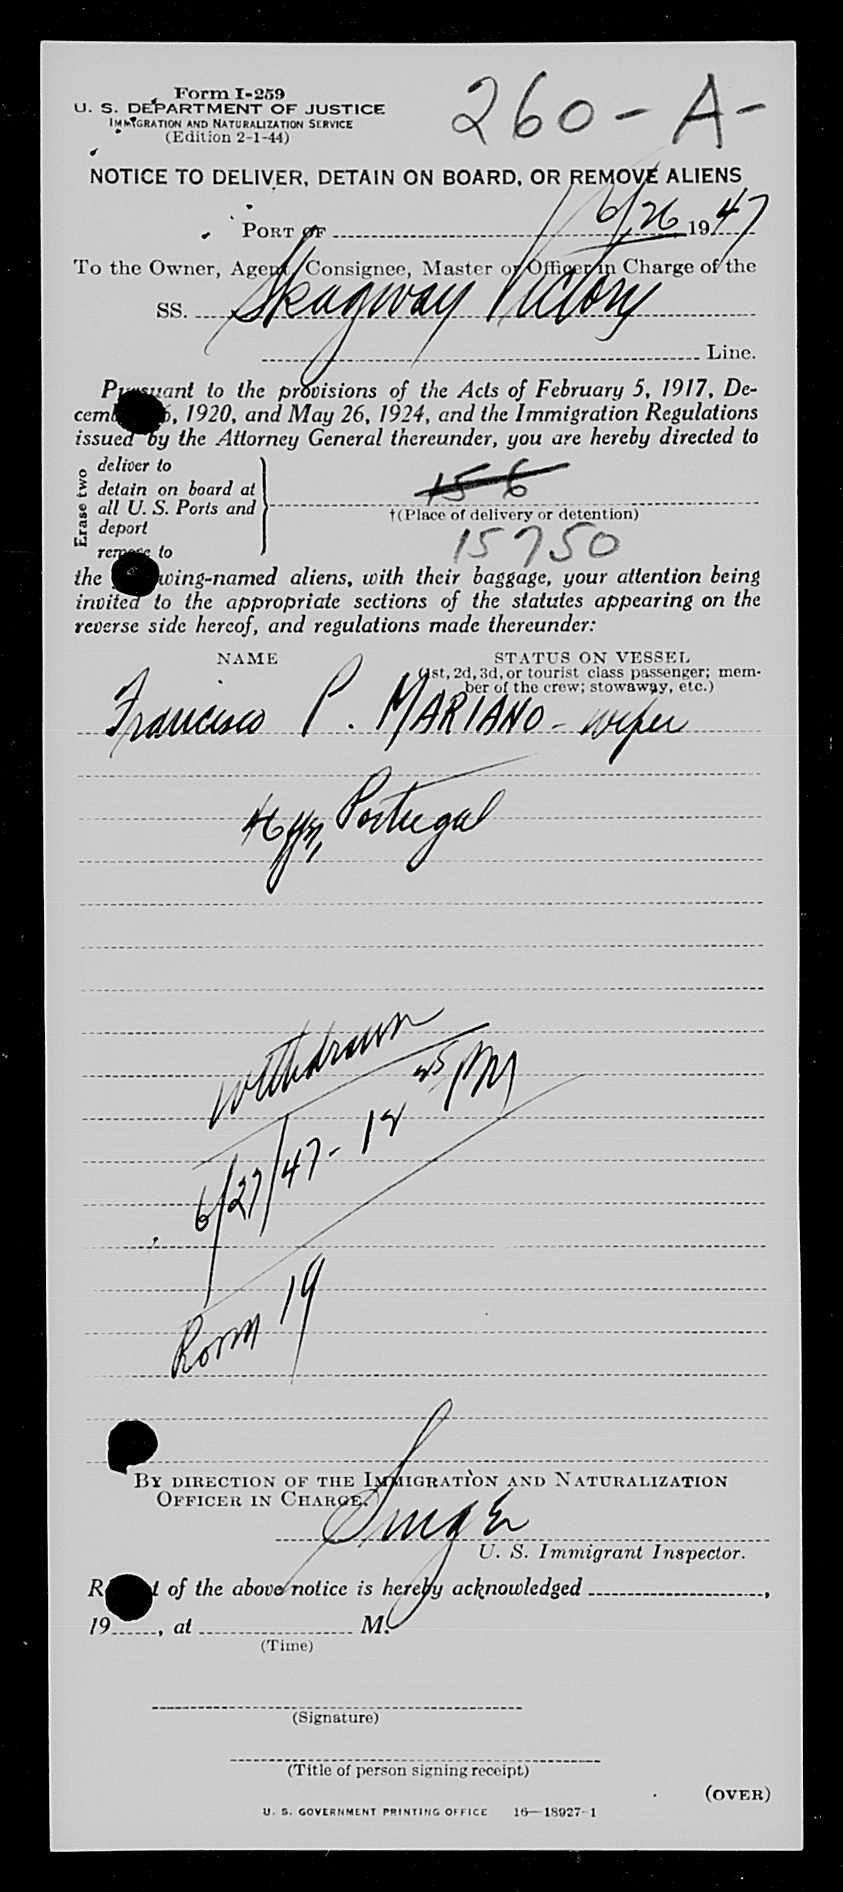 Form I-259
U. S. DEPARTMENT OF JUSTICE
IMMIGRATION AND NATURALIZATION SERVICE
(Edition 2-1-44)
260-A-
NOTICE TO DELIVER, DETAIN ON BOARD, OR REMOVE ALIENS
PORT OF 6/26 1947
To the Owner, Agent, Consignee, Master or Officer in Charge of the
SS. Skagway Victory
Line.
Pursuant to the provisions of the Acts of February 5, 1917, De-
cem 6, 1920, and May 26, 1924, and the Immigration Regulations
issued by the Attorney General thereunder, you are hereby directed to
Erase two
deliver to
detain on board at
all U. S. Ports and
deport
remove to
156
†(Place of delivery or detention)
15750
the wing-named aliens, with their baggage, your attention being
invited to the appropriate sections of the statutes appearing on the
reverse side hereof, and regulations made thereunder:
NAME STATUS ON VESSEL
(1st, 2d, 3d, or tourist class passenger; mem-
ber of the crew; stowaway, etc.)
Francisco P. MARIANO - wiper
46 yrs, Portugal
Withdrawn
6/27/47 - 12 45 PM
Room 19
BY DIRECTION OF THE IMMIGRATION AND NATURALIZATION
OFFICER IN CHARGE.
U. S. Immigrant Inspector.
R t of the above notice is hereby acknowledged ,
19 , at M.
(Time)
(Signature)
(Title of person signing receipt)
(OVER)
U. S. GOVERNMENT PRINTING OFFICE 16—18927-1